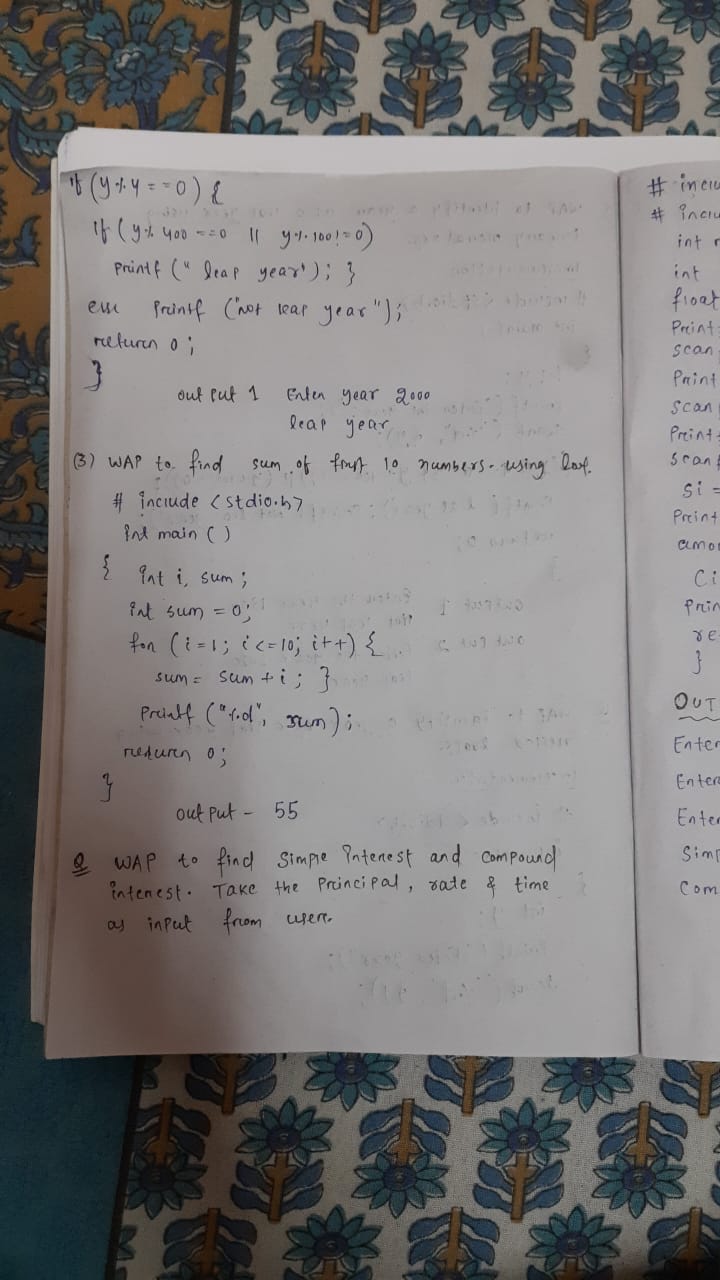 if (y % 4 = = 0) {
if (y % 400 == 0 || y % 100 != 0)
printf (" leap year"); }
else printf ("not leap year");
return 0;
}
out put 1 Enter year 2000
leap year
(3) WAP to find sum of first 10 numbers. using
# include <stdio.h>
int main ( )
{ int i, sum ;
int sum = 0;
for (i = 1; i <= 10; i++) {
sum = sum + i ; }
printf ("%d", sum);
return 0;
}
out put - 55
Q WAP to find Simple interest and compound
interest. Take the Principal, rate & time
as input from user.
# inclu
# inclu
int
int
float
Print
scan
Print
scan
Print
scanf
Si =
Print
amo
Ci
Prin
re
}
OUT
Enter
Enter
Enter
Simp
Com